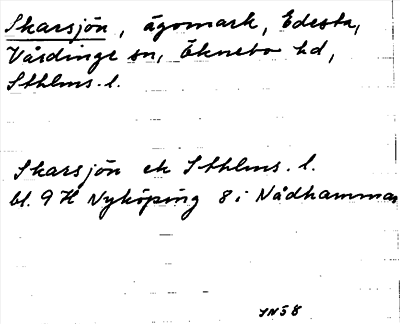 Skarsjön, ägomark, Edesta,
Vårdinge sn, Öknebo hd,
Sthlms. l.
Skarsjön ek Sthlms. l.
bl. 9 H Nyköping 8 i Nådhammar
JN58